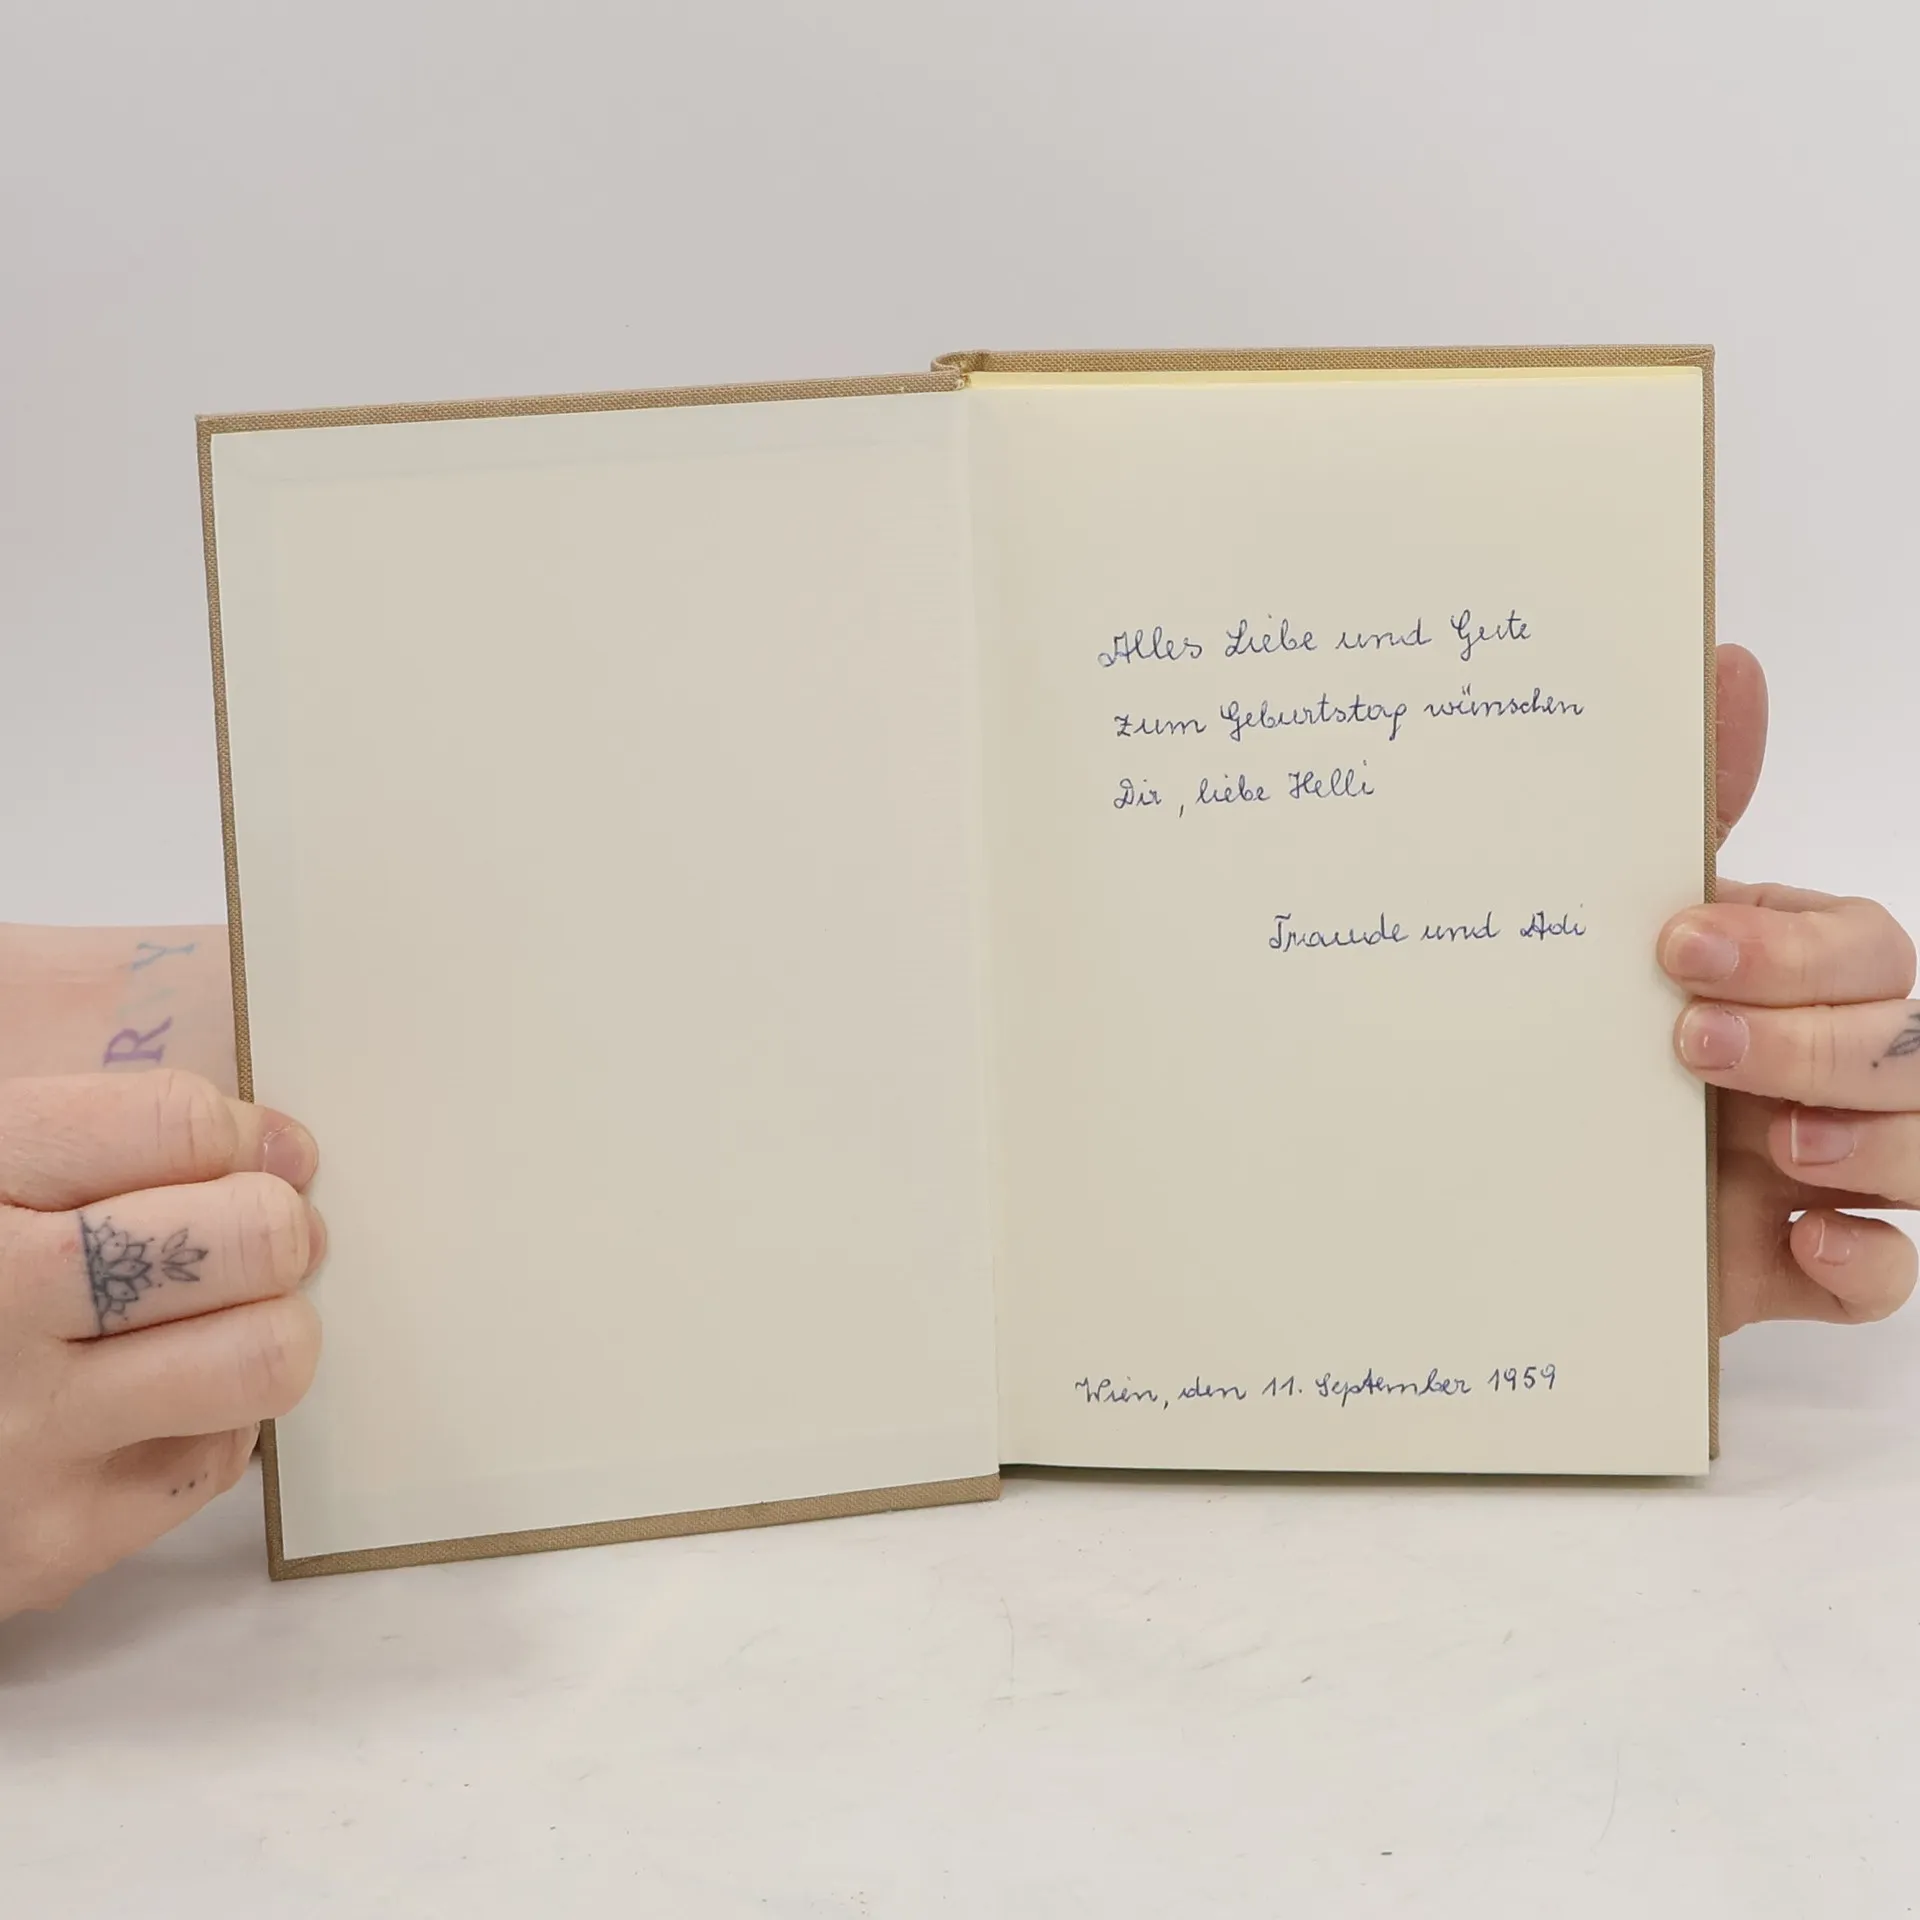 Alles Liebe und Gute
zum Geburtstag wünschen
Dir, liebe Helli
Traude und Adi
Wien, den 11. September 1959
RVY